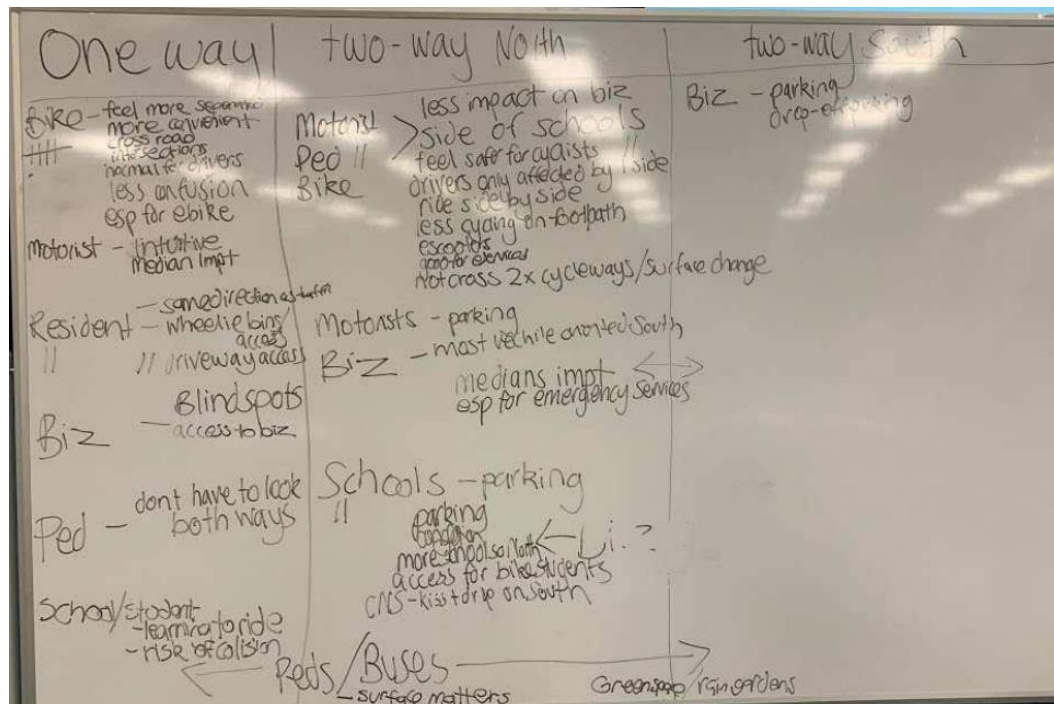 One way
Bike - feel more
more convenient
cross road
intersections
normal for drivers
less confusion
esp for ebike
Motorist - intuitive
median impt
- same direction as
Resident - wheelie bins/
access
" // driveway access
Blindspots
Biz - access to biz
Ped - dont have to look
both ways
School/student-
- learning to ride
- risk of colision
two-way North
Motorist
Ped //
Bike
less impact on biz
side of schools
feel safer for cyclists //
drivers only affected by 1 side
ride side by side
less cycling on footpath
good for services
Not cross 2x cycleways/surface change
Motorists - parking
Biz - most vechile oriented South
medians impt
esp for emergency services
Schools - parking
" parking
more schools North
access for bike students
CNS - kiss + drop on south
two-way South
Biz - parking
drop-off parking
Peds/Buses
- surface matters
Greenspace/raingardens